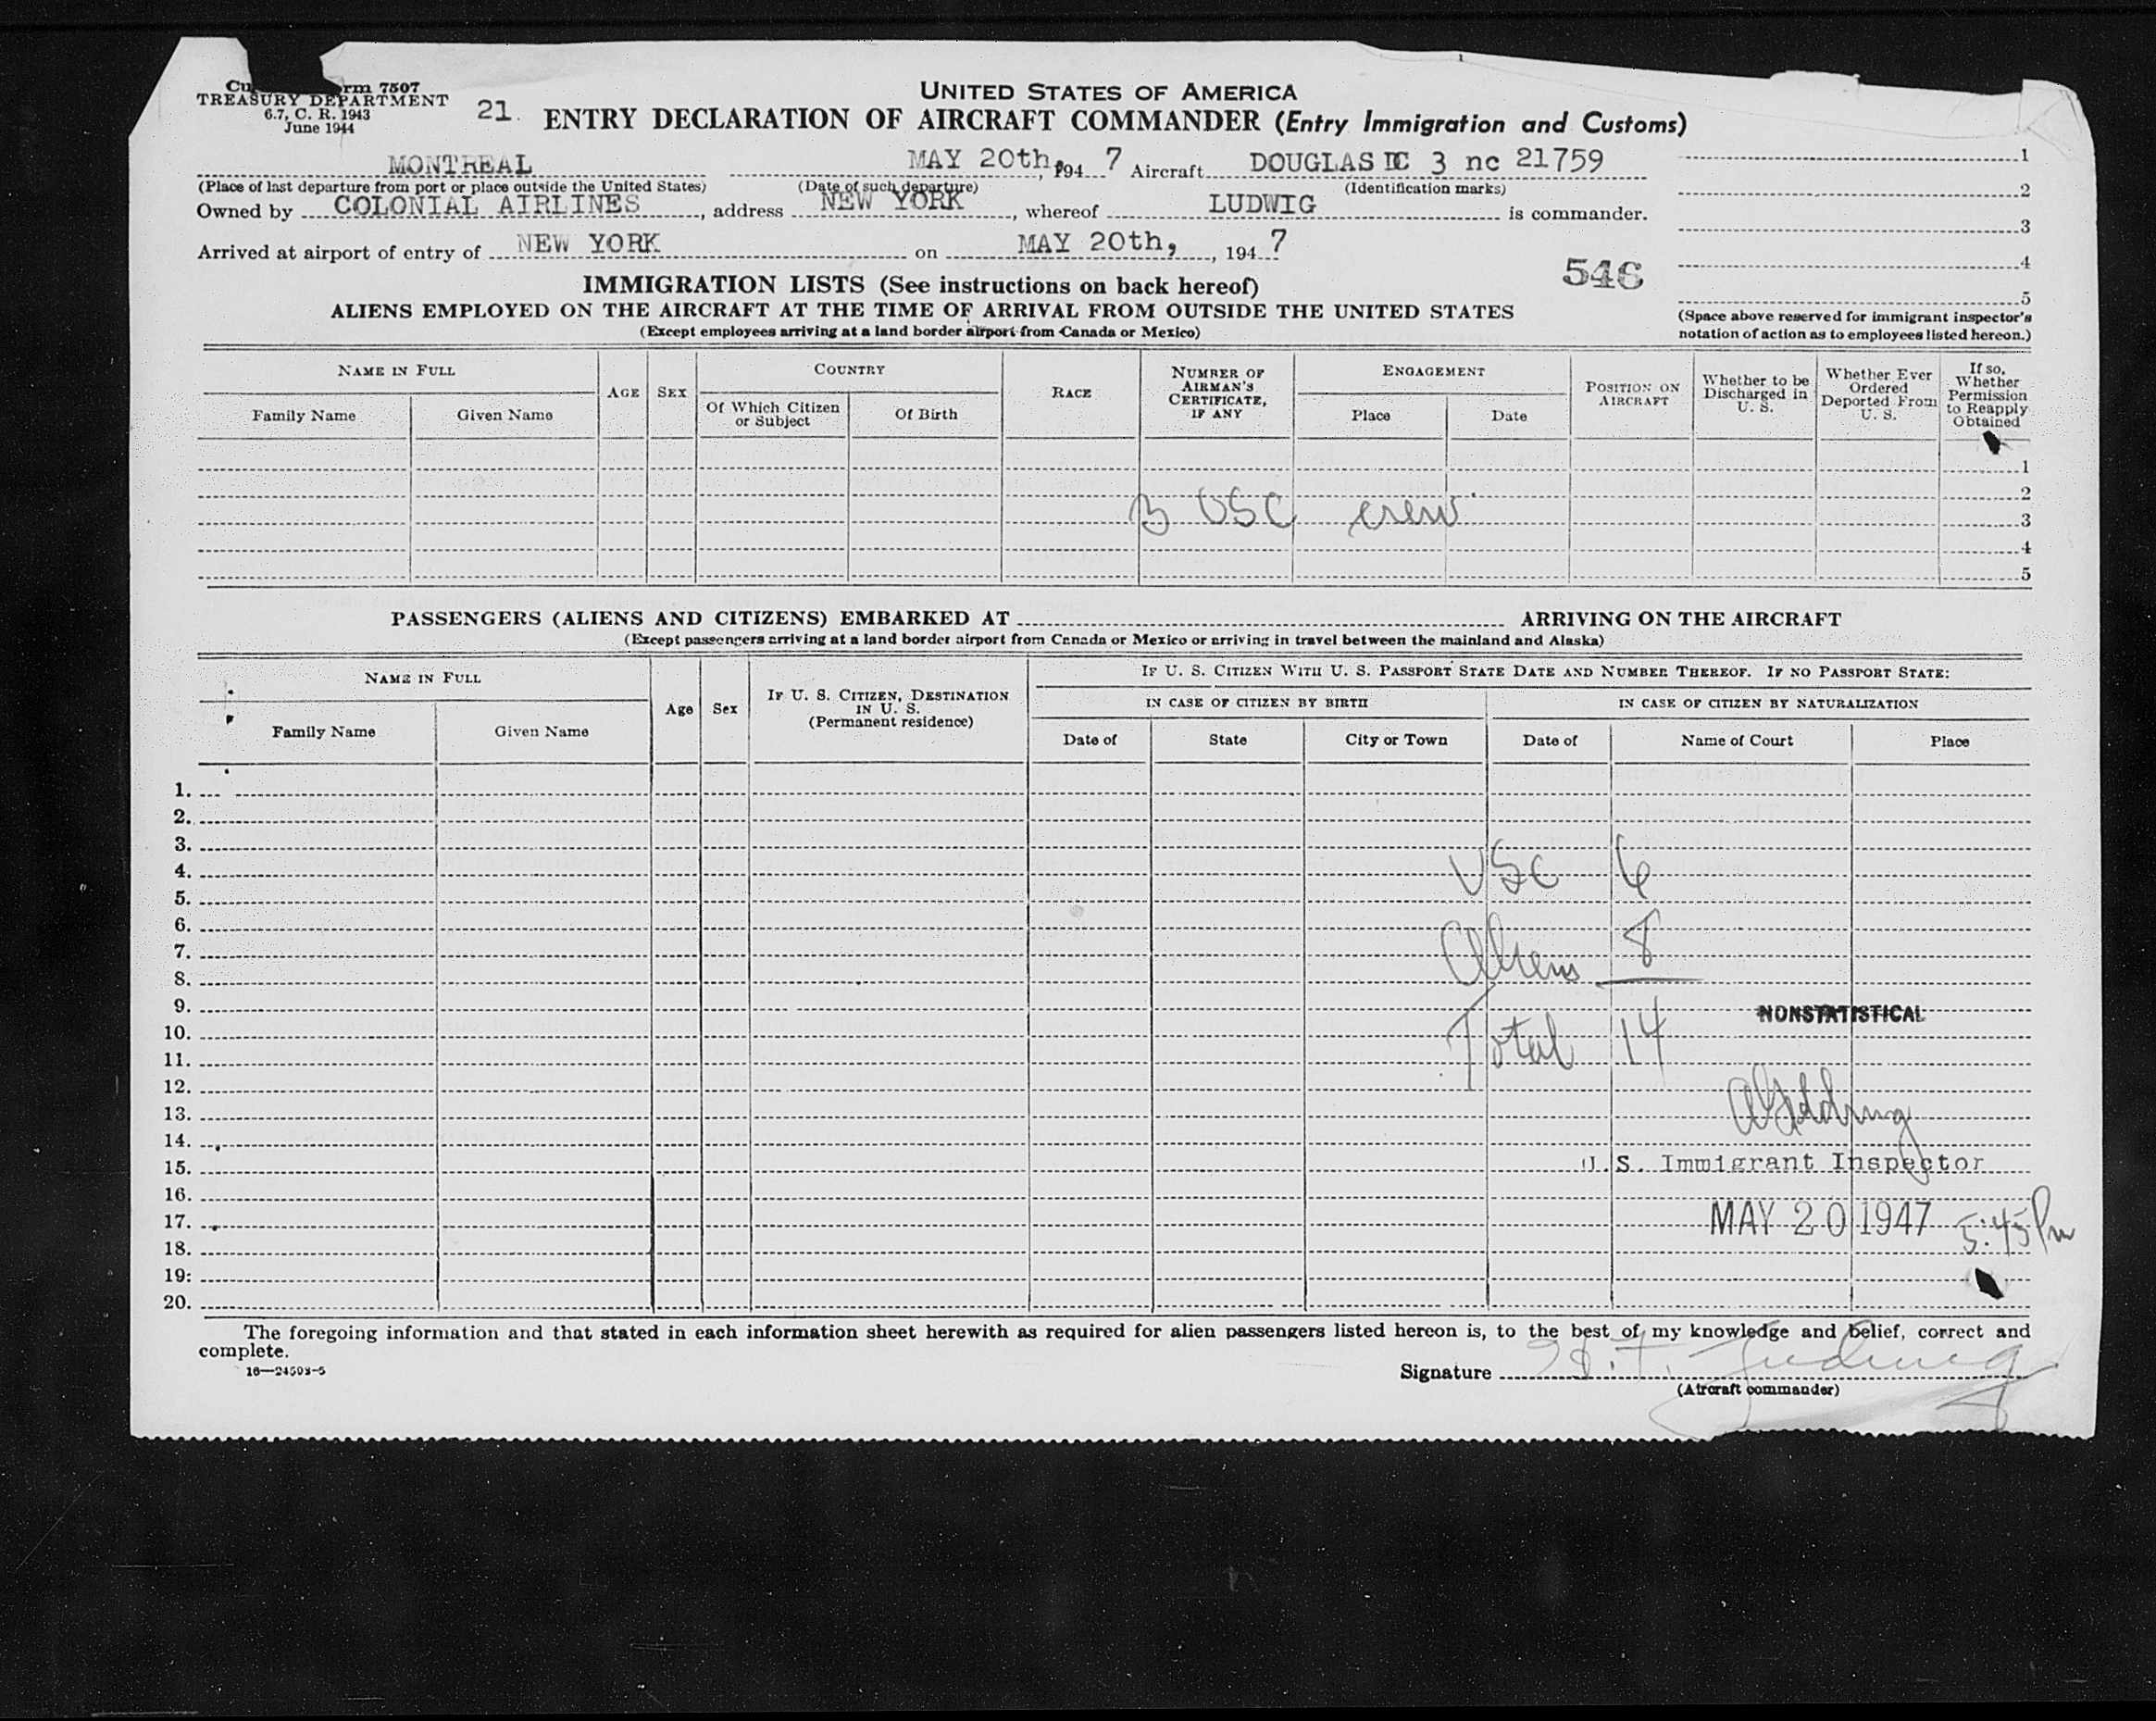 UNITED STATES OF AMERICA
Cu rm 7507
TREASURY DEPARTMENT
6.7, C. R. 1943
June 1944
21. ENTRY DECLARATION OF AIRCRAFT COMMANDER (Entry Immigration and Customs)
MONTREAL MAY 20th, 194 7 Aircraft DOUGLAS DC 3 nc 21759
(Place of last departure from port or place outside the United States) (Date of such departure) (Identification marks)
Owned by COLONIAL AIRLINES, address NEW YORK, whereof LUDWIG is commander.
Arrived at airport of entry of NEW YORK on MAY 20th, , 194 7
1
2
3
4
5
(Space above reserved for immigrant inspector's
notation of action as to employees listed hereon.)
546
IMMIGRATION LISTS (See instructions on back hereof)
ALIENS EMPLOYED ON THE AIRCRAFT AT THE TIME OF ARRIVAL FROM OUTSIDE THE UNITED STATES
(Except employees arriving at a land border airport from Canada or Mexico)
NAME IN FULL
Family Name Given Name
AGE SEX
COUNTRY
Of Which Citizen
or Subject
Of Birth
RACE
NUMBER OF
AIRMAN'S
CERTIFICATE,
IF ANY
ENGAGEMENT
Place Date
POSITION ON
AIRCRAFT
Whether to be
Discharged in
U. S.
Whether Ever
Ordered
Deported From
U. S.
If so,
Whether
Permission
to Reapply
Obtained
1
2
3 USC crew
3
4
5
PASSENGERS (ALIENS AND CITIZENS) EMBARKED AT ARRIVING ON THE AIRCRAFT
(Except passengers arriving at a land border airport from Canada or Mexico or arriving in travel between the mainland and Alaska)
NAME IN FULL
Family Name Given Name
Age Sex
IF U. S. CITIZEN, DESTINATION
IN U. S.
(Permanent residence)
IF U. S. CITIZEN WITH U. S. PASSPORT STATE DATE AND NUMBER THEREOF. IF NO PASSPORT STATE:
IN CASE OF CITIZEN BY BIRTH IN CASE OF CITIZEN BY NATURALIZATION
Date of State City or Town Date of Name of Court Place
1.
2.
3.
4. USC 6
5.
6.
7. Aliens 8
8.
9. NONSTATISTICAL
10. Total 14
11.
12.
13.
14.
15. U.S. Immigrant Inspector
16.
17. MAY 20 1947 5:45 Pm
18.
19:
20.
The foregoing information and that stated in each information sheet herewith as required for alien passengers listed hereon is, to the best of my knowledge and belief, correct and
complete.
16—24503-5
Signature Ludwig
(Aircraft commander)